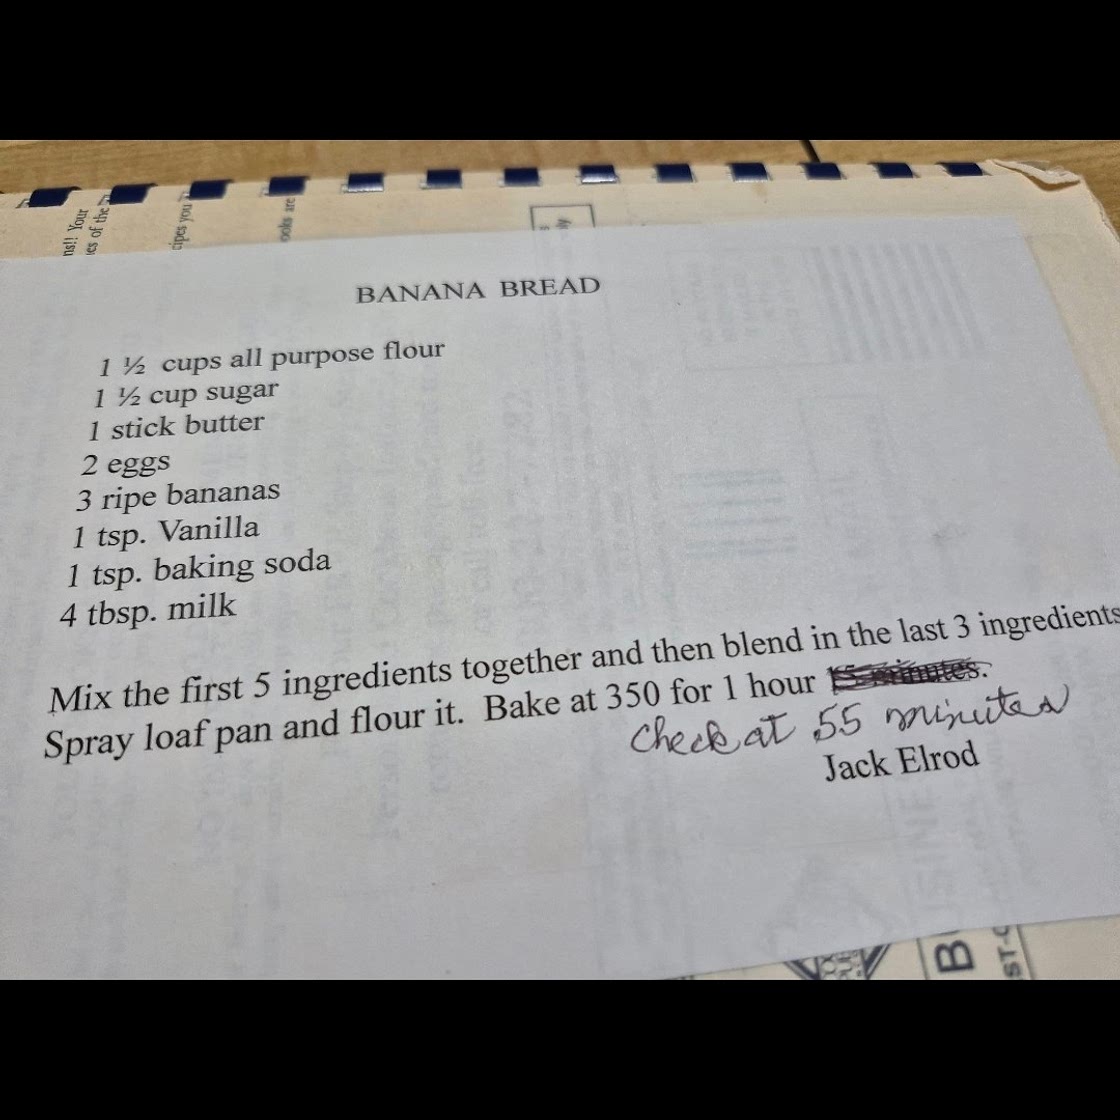 ns!! Your
es of the
cipes you
ooks are
BANANA BREAD
1 ½ cups all purpose flour
1 ½ cup sugar
1 stick butter
2 eggs
3 ripe bananas
1 tsp. Vanilla
1 tsp. baking soda
4 tbsp. milk
Mix the first 5 ingredients together and then blend in the last 3 ingredients
Spray loaf pan and flour it. Bake at 350 for 1 hour 15 minutes.
check at 55 minutes
Jack Elrod
BUSINE
ST-C